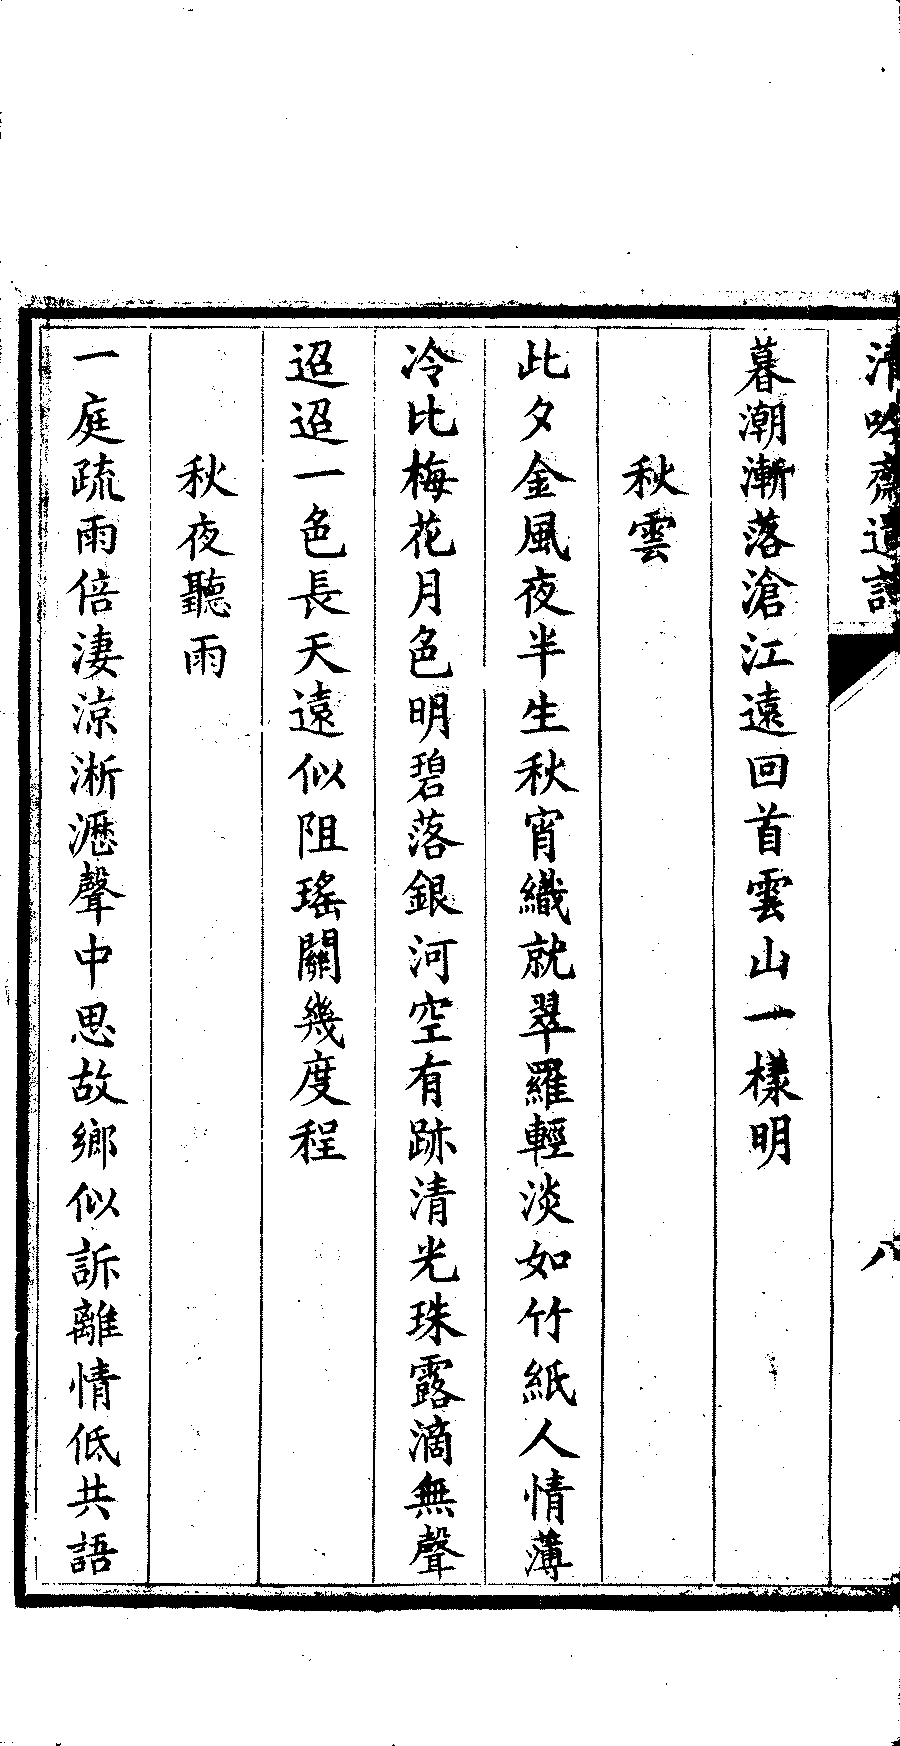 清吟齋遺詩
八
暮潮漸落滄江遠回首雲山一樣明
秋雲
此夕金風夜半生秋宵織就翠羅輕淡如竹紙人情薄
冷比梅花月色明碧落銀河空有跡清光珠露滴無聲
迢迢一色長天遠似阻瑤關幾度程
秋夜聽雨
一庭疏雨倍淒涼淅瀝聲中思故鄉似訴離情低共語